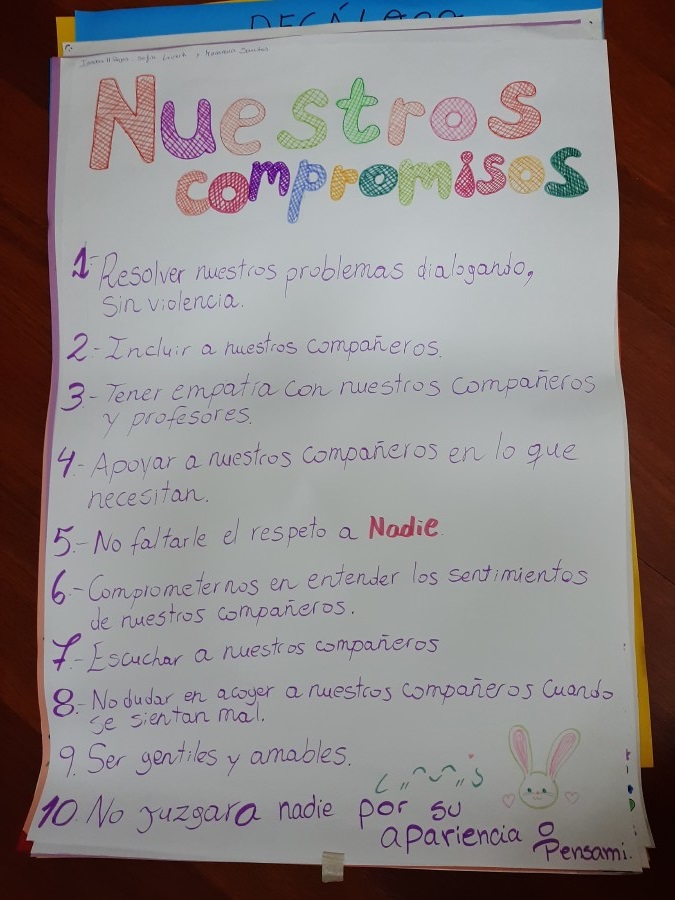 DECÁLOGO
Nuestros
compromisos
1- Resolver nuestros problemas dialogando,
sin violencia.
2.- Incluir a nuestros compañeros.
3.- Tener empatía con nuestros compañeros
y profesores.
4.- Apoyar a nuestros compañeros en lo que
necesitan.
5.- No faltarle el respeto a Nadie.
6.- Comprometernos en entender los sentimientos
de nuestros compañeros.
7.- Escuchar a nuestros compañeros
8.- No dudar en acoger a nuestros compañeros cuando
se sientan mal.
9. Ser gentiles y amables.
10. No juzgara nadie por su
apariencia o
Pensami.